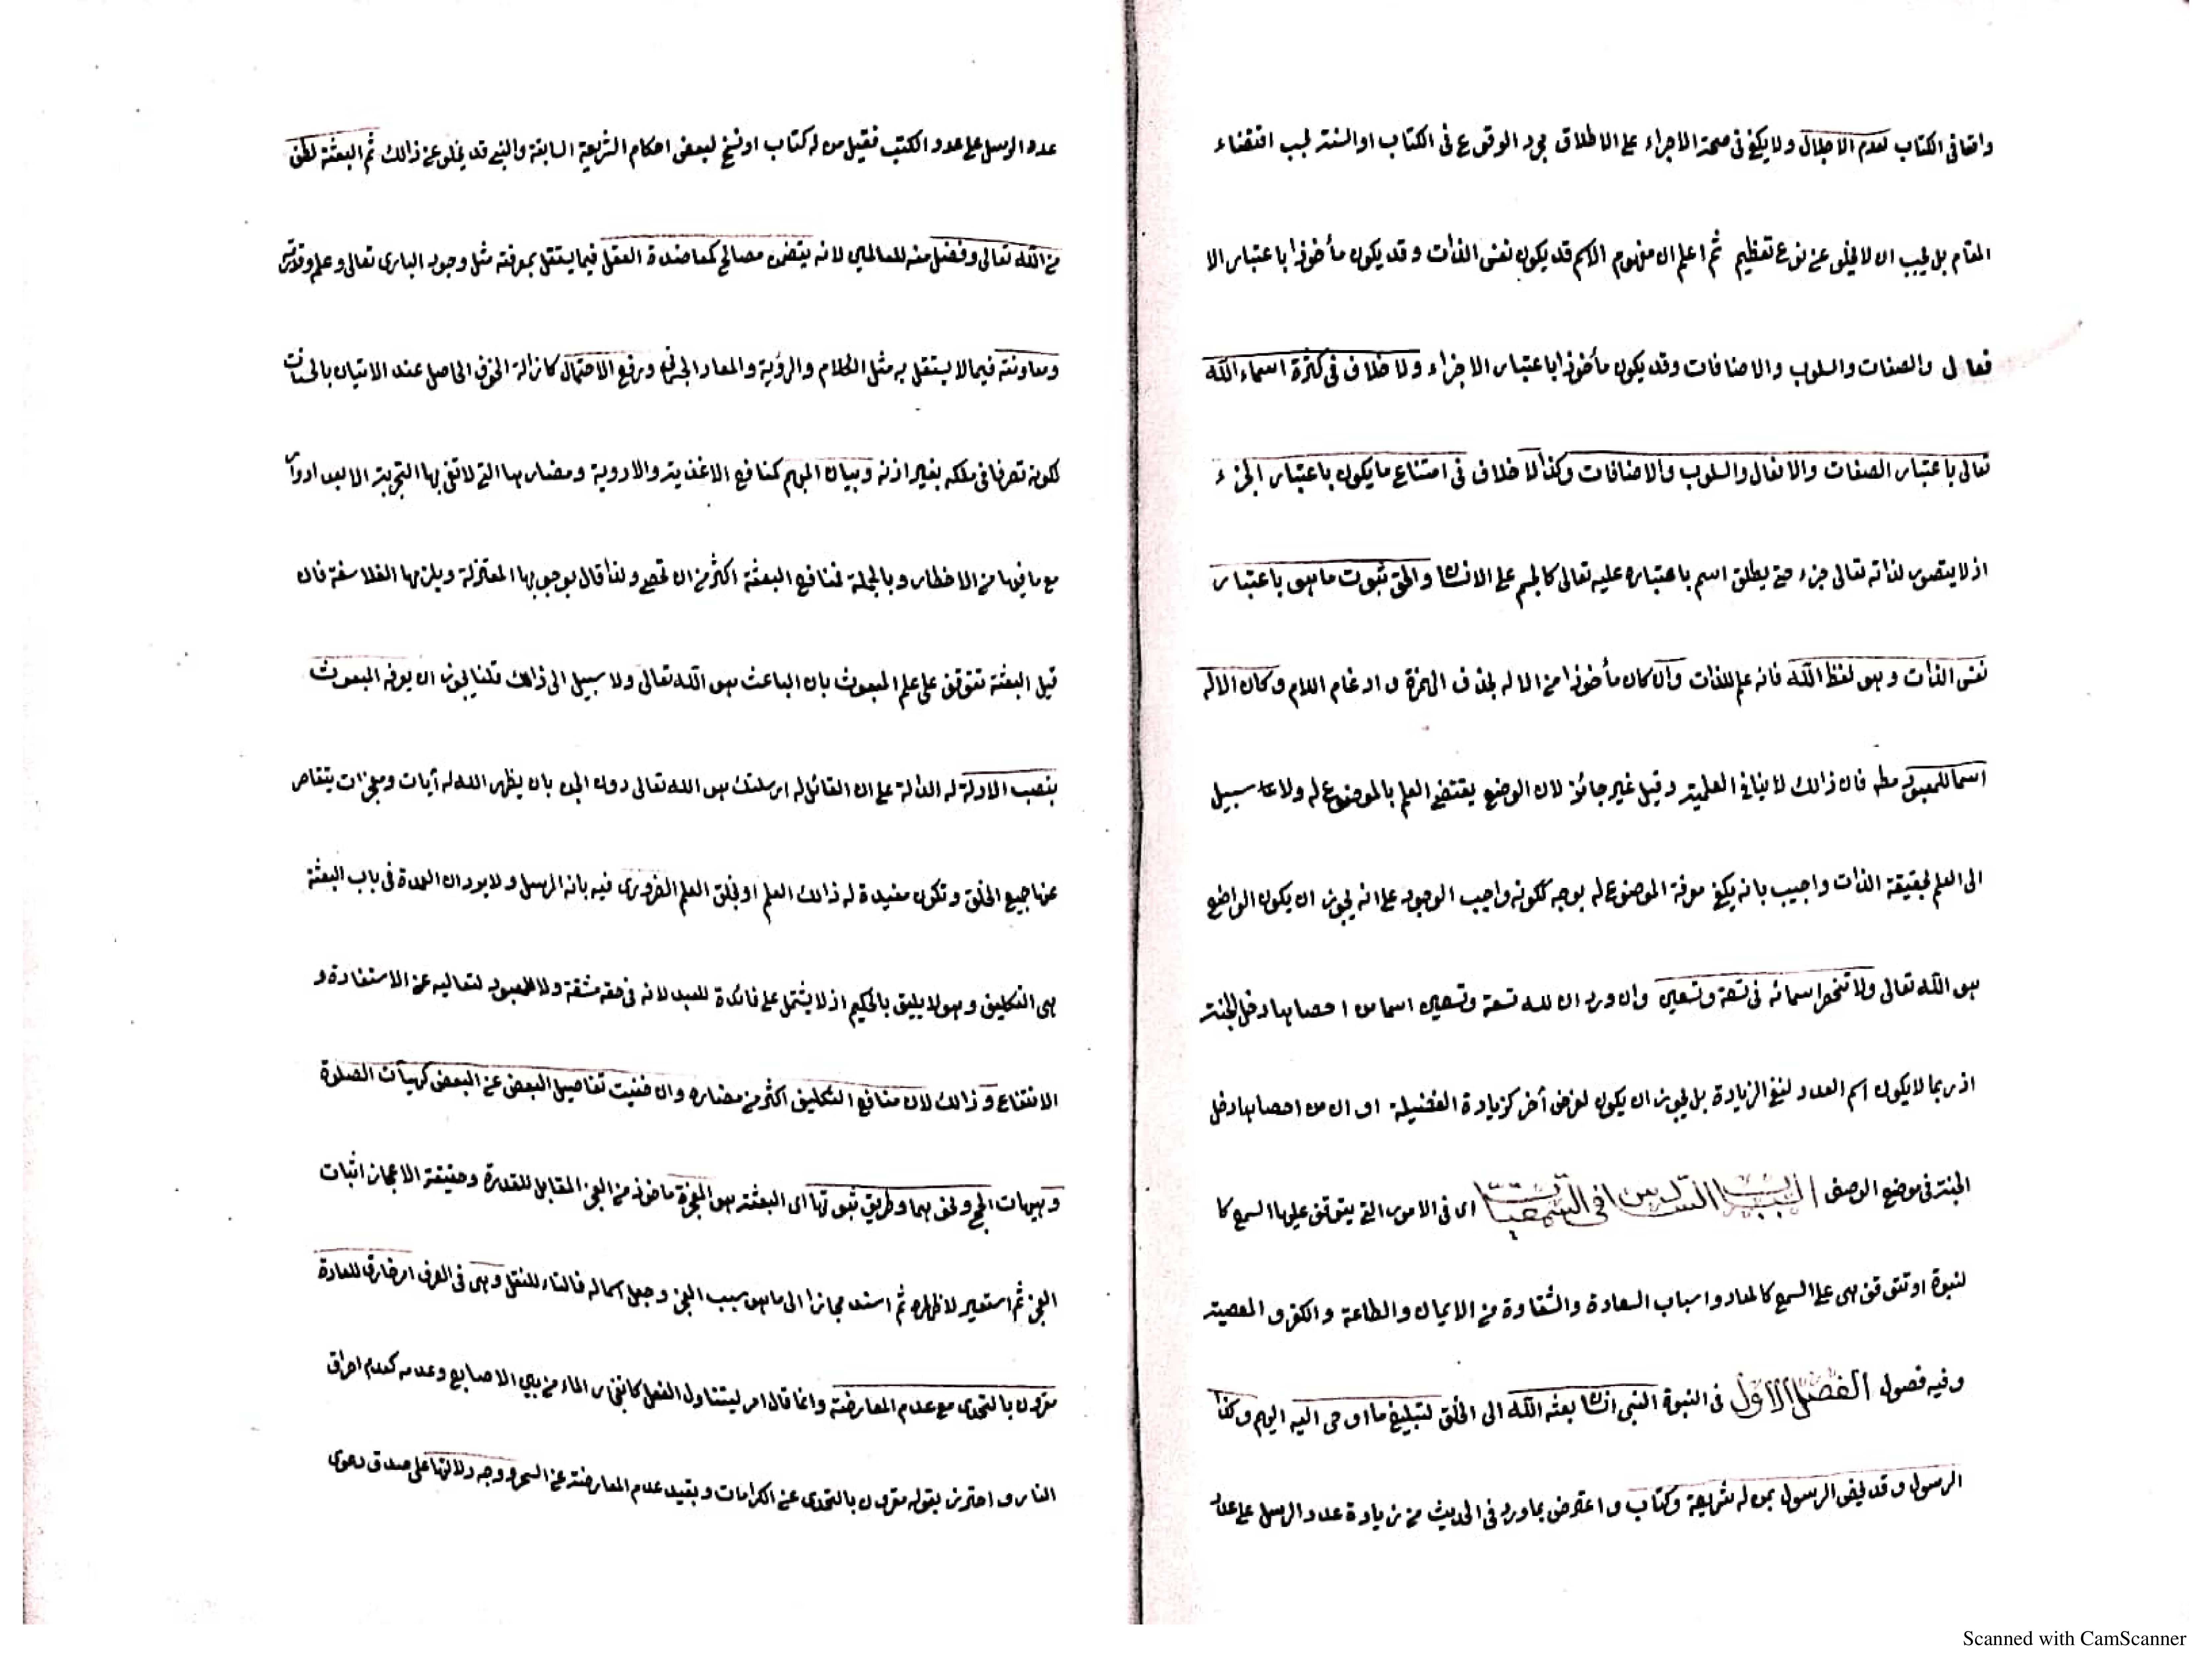 واقعا فى الكتاب لعدم الاجلال ولا يكفى فى صحة الاجراء على الاطلاق مجرد الوقوع فى الكتاب او السنة بحسب اقتضاء
المقام بل يجب ان لا يخلو عن نوع تعظيم ثم اعلم ان مفهوم الاسم قد يكون نفس الذات وقد يكون مأخوذا باعتبار الا
فعال والصفات والسلوب والاضافات وقد يكون مأخوذا باعتبار الاجزاء ولا خلاف فى كثرة اسماء الله
تعالى باعتبار الصفات والافعال والسلوب والاضافات وكذا لا خلاف فى امتناع ما يكون باعتبار الجزء
اذ لا يتصور لذاته تعالى جزء حتى يطلق اسم باعتباره عليه تعالى كالجسم على الانسان والحق ثبوت ما هو باعتبار
نفس الذات وهو لفظ الله فانه علم للذات وان كان مأخوذا من الاله بحذف الهمزة وادغام اللام وكان الاله
اسما للمعبود مطه فان ذالك لا ينافى العلمية وقيل غير جائز لان الوضع يقتضى العلم بالموضوع له ولا سبيل
الى العلم بحقيقة الذات واجيب بانه يكفى معرفة الموضوع له بوجه ككونه واجب الوجود على انه يجوز ان يكون الواضع
هو الله تعالى ولا تنحصر اسمائه فى تسعة وتسعين وان ورد ان لله تسعة وتسعين اسما من احصاها دخل الجنة
اذ ربما لا يكون اسم العدد لنفى الزيادة بل يجوز ان يكون لغرض أخر كزيادة الفضيلة او ان من احصاها دخل
الجنة فى موضع الوصف الباب السادس فى السمعيات اى فى الامور التى يتوقف عليها السمع كا
لنبوة او تتوقف هى على السمع كالمعاد واسباب السعادة والشقاوة من الايمان والطاعة والكفر والمعصية
وفيه فصول الفصل الاول فى النبوة النبى انسان بعثه الله الى الخلق لتبليغ ما اوحى اليه اليهم وكذا
الرسول وقد يخص الرسول بمن له شريعة وكتاب واعترض بما ورد فى الحديث من زيادة عدد الرسل على عدد
عدد الرسل على عدد الكتب فقيل من له كتاب او نسخ لبعض احكام الشريعة السابقة والنبى قد يخلو عن ذالك ثم البعثة لطف
من الله تعالى وفضل منه للعالمين لانه يتضمن مصالح كمعاضدة العقل فيما يستقل بمعرفته مثل وجود البارى تعالى وعلمه وقدرته
ومعاونته فيما لا يستقل به مثل الكلام والرؤية والمعاد الجسمانى ورفع الاحتمال كازالة الخوف الحاصل عند الاتيان بالحسنات
لكونه تصرفا فى ملكه بغير اذنه وبيان المبهم كمنافع الاغذية والادوية ومضارها التى لا تفى بها التجربة الا بعد ادوار
مع ما فيها من الاخطار وبالجملة فمنافع البعثة اكثر من ان تحصى ولذا قال بوجوبها المعتزلة ويلزمها الفلاسفة فان
قيل البعثة تتوقف على علم المبعوث بان الباعث هو الله تعالى ولا سبيل الى ذالك قلنا يجوز ان يعرفه المبعوث
بنصب الادلة له الدالة على ان القائل له ارسلتك هو الله تعالى دون الجن بان يظهر الله له أيات ومعجزات يتقاصر
عنها جميع الخلق وتكون مفيدة له ذالك العلم او بخلق العلم الضرورى فيه بانه المرسل ولا يورد ان العمدة فى باب البعثة
هى التكليف وهو لا يليق بالحكيم اذ لا يشتمل على فائدة للعبد لانه فى حقه مشقة ولا للمعبود لتعاليه عن الاستفادة و
الانتفاع وذالك لان منافع التكليف اكثر من مضاره وان خفيت تفاصيل البعض عن البعض كهيآت الصلوة
وهيهات الحج ونحوهما وطريق ثبوتها اى البعثة هو المعجزة ماخوذ من العجز المقابل للقدرة وحقيقة الاعجاز اثبات
العجز ثم استعير لاظهاره ثم اسند مجازا الى ما هو سبب العجز وجعل اسما له فالتاء للنقل وهى فى العرف امر خارق للعادة
مقرون بالتحدى مع عدم المعارضة وانما قال امر ليتناول الفعل كانفجار الماء من بين الاصابع وعدمه كعدم احراق
النار واحترز بقوله مقرون بالتحدى عن الكرامات وبقيد عدم المعارضة عن السحر ووجه دلالتها على صدق دعوى
Scanned with CamScanner